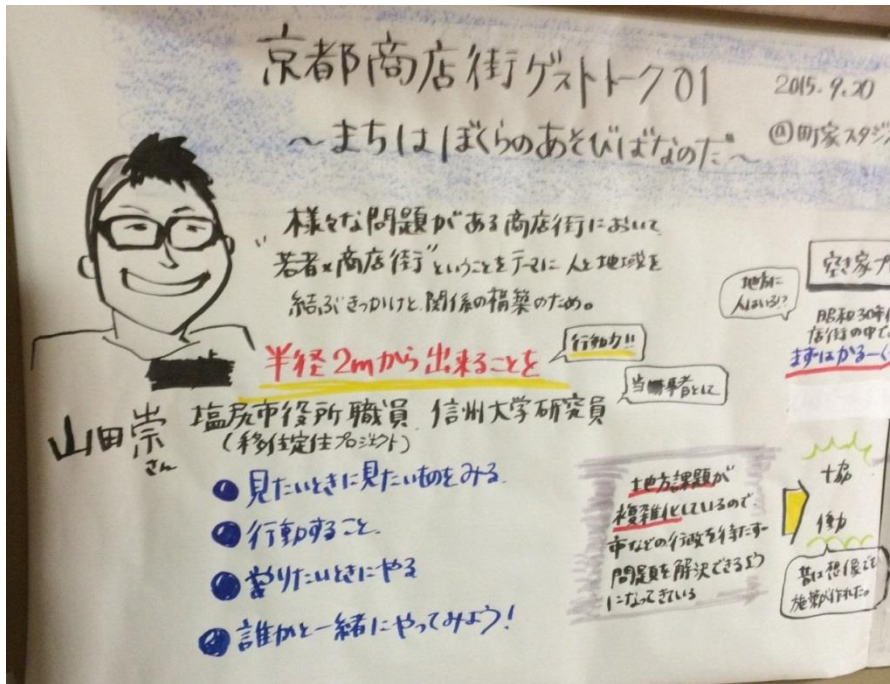 京都商店街ゲストトーク01
2015.9.20
〜まちはぼくらのあそびばなのだ〜
@町家スタジ
様々な問題がある商店街において
"若者×商店街"ということをテーマに人と地域を
結ぶきっかけと関係の構築のため。
半径2mから出来ることを
行動力!!
当事者として
山田崇さん
塩尻市役所職員 信州大学研究員
(移住定住プロジェクト)
見たいときに見たいものをみる
行動すること
やりたいときにやる
誰かと一緒にやってみよう!
地方課題が
複雑化しているので
市などの行政を待たず
問題を解決できるよう
になってきている
地方に
人はいる!?
空き家プ
昭和30年
店街の中で
まずはかるーく
協
働
昔は想像でも
施策が作れた。